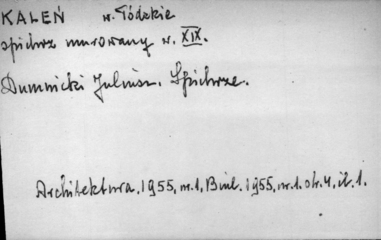 KALEŃ w. Łódzkie
spichrz murowany w. XIX.
Dumnicki Juliusz. Spichrze.
Architektura, 1955, nr. 1, Biul. 1955, nr. 1. str. 4, il. 1.